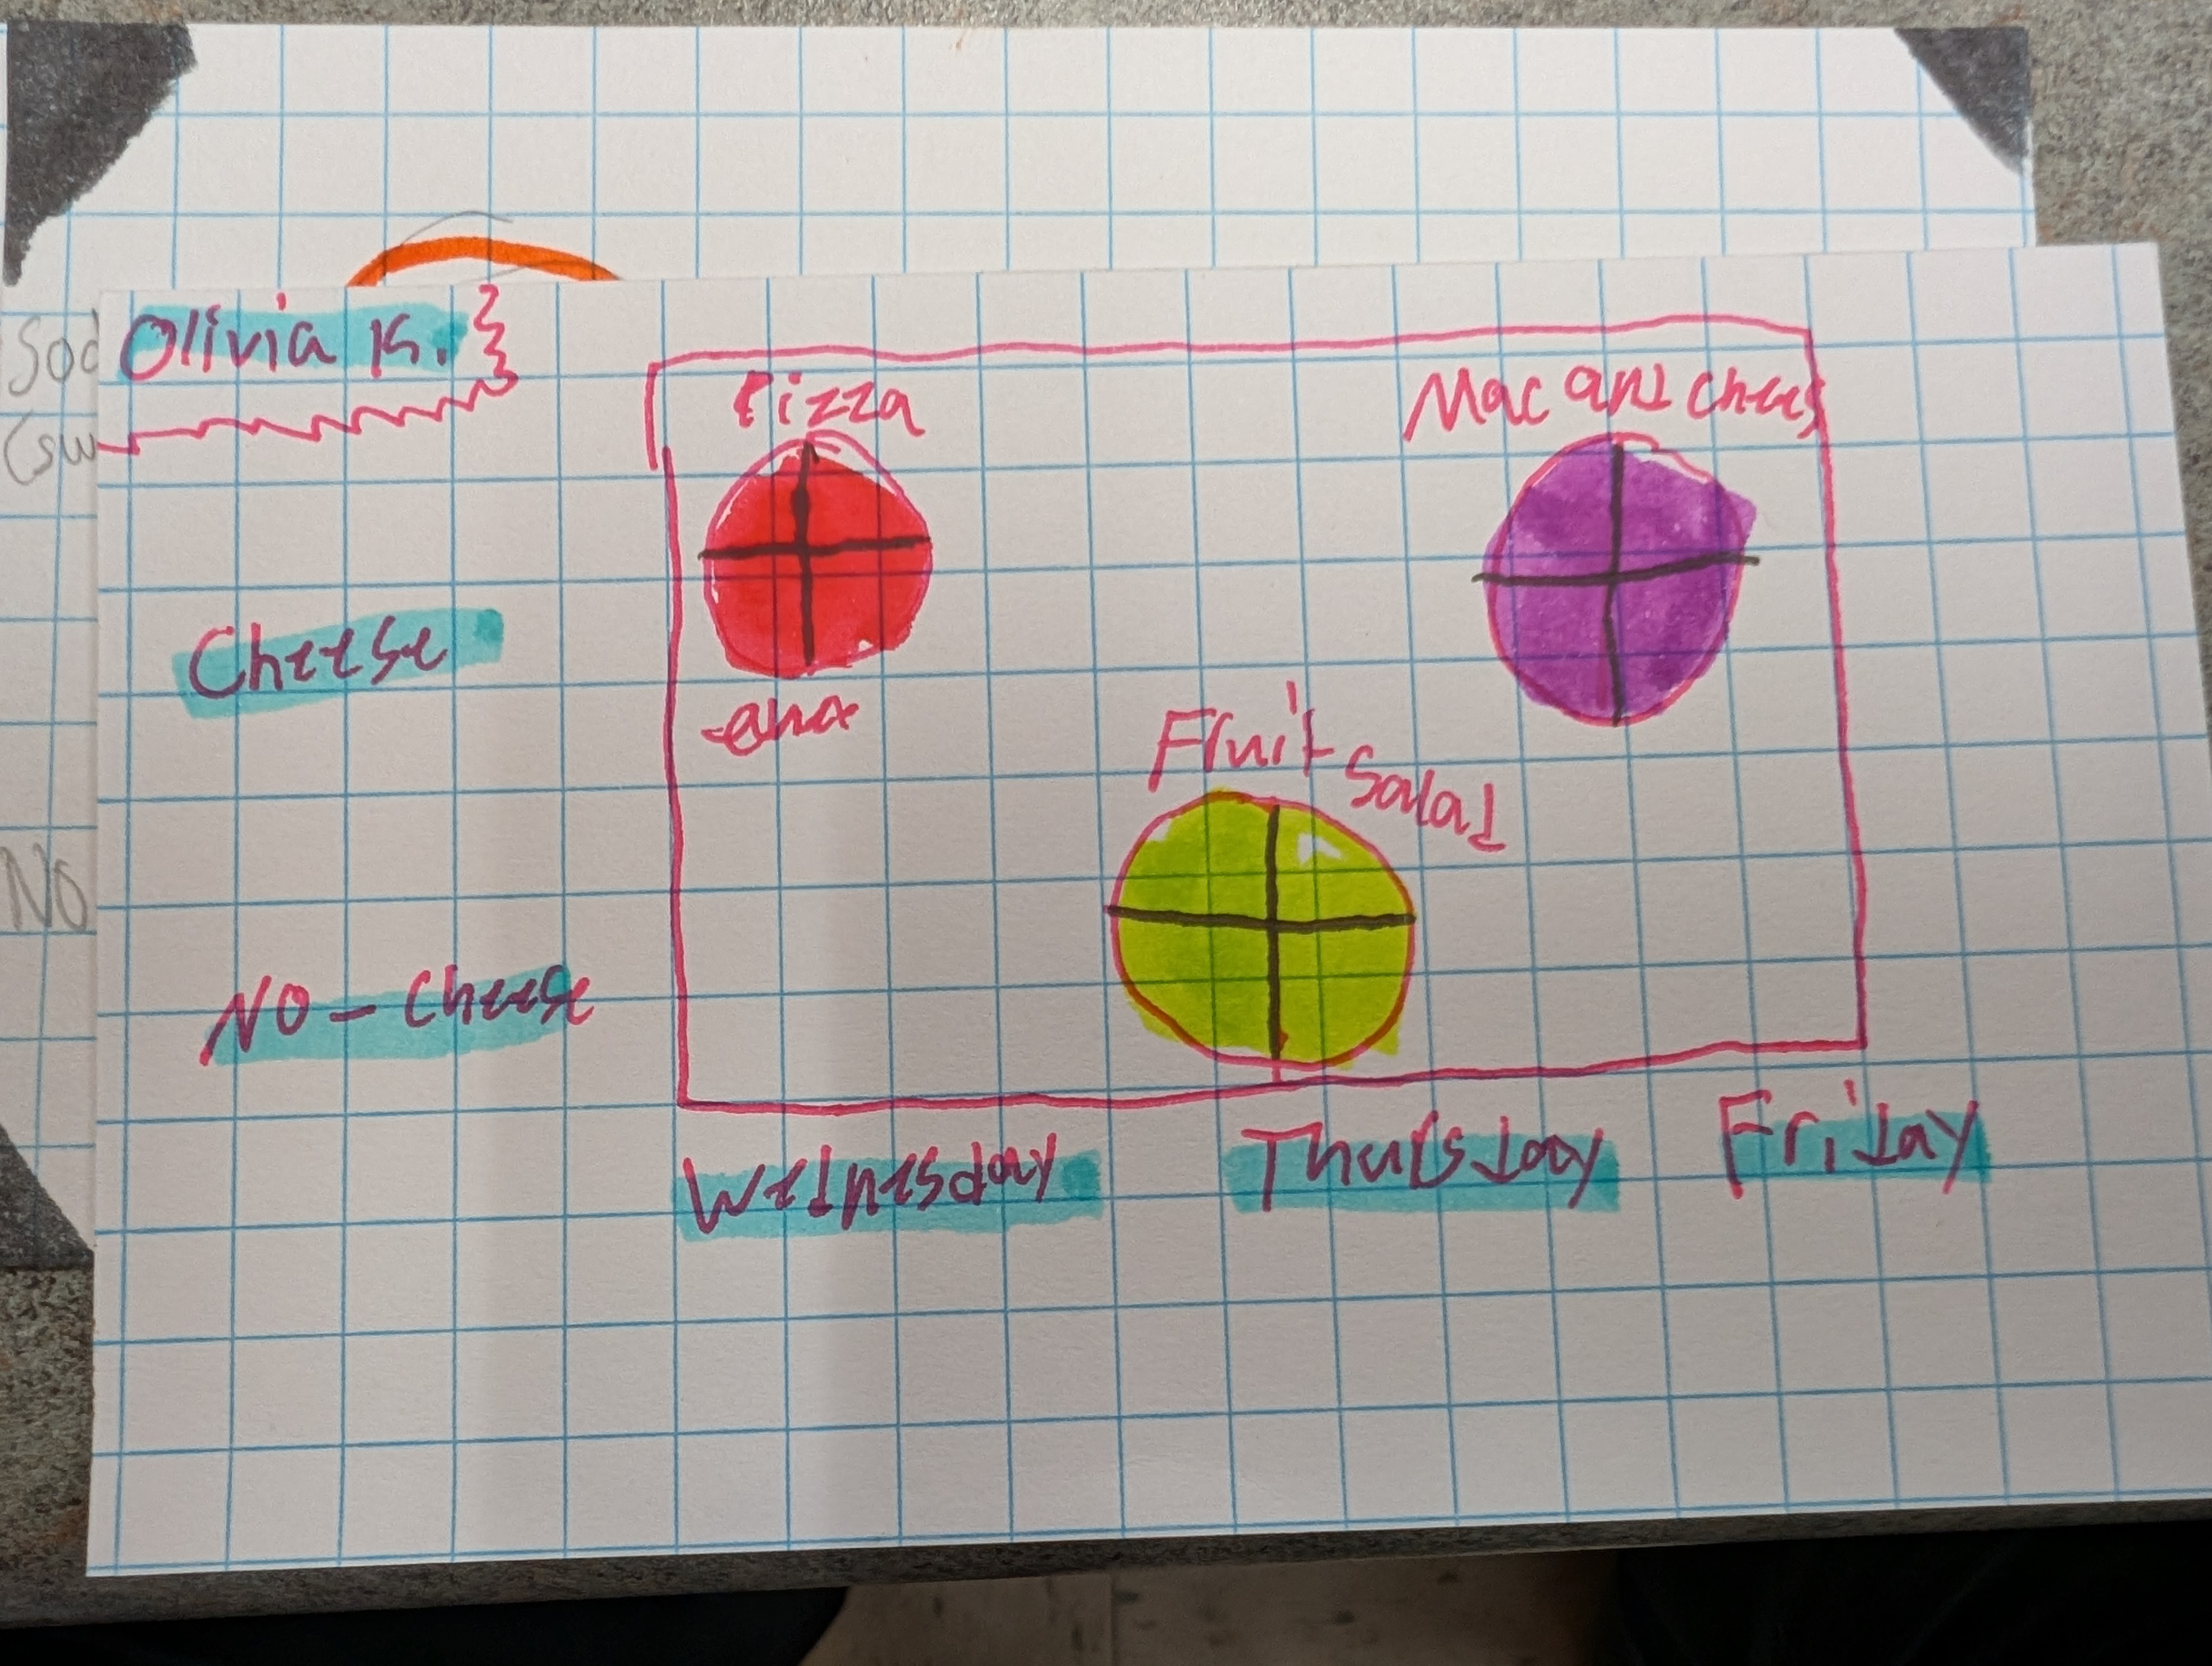 Sod
Olivia K.
(sw
Pizza
Mac and chees
Cheese
Fruit salad
No
NO-cheese
Wednesday Thursday Friday